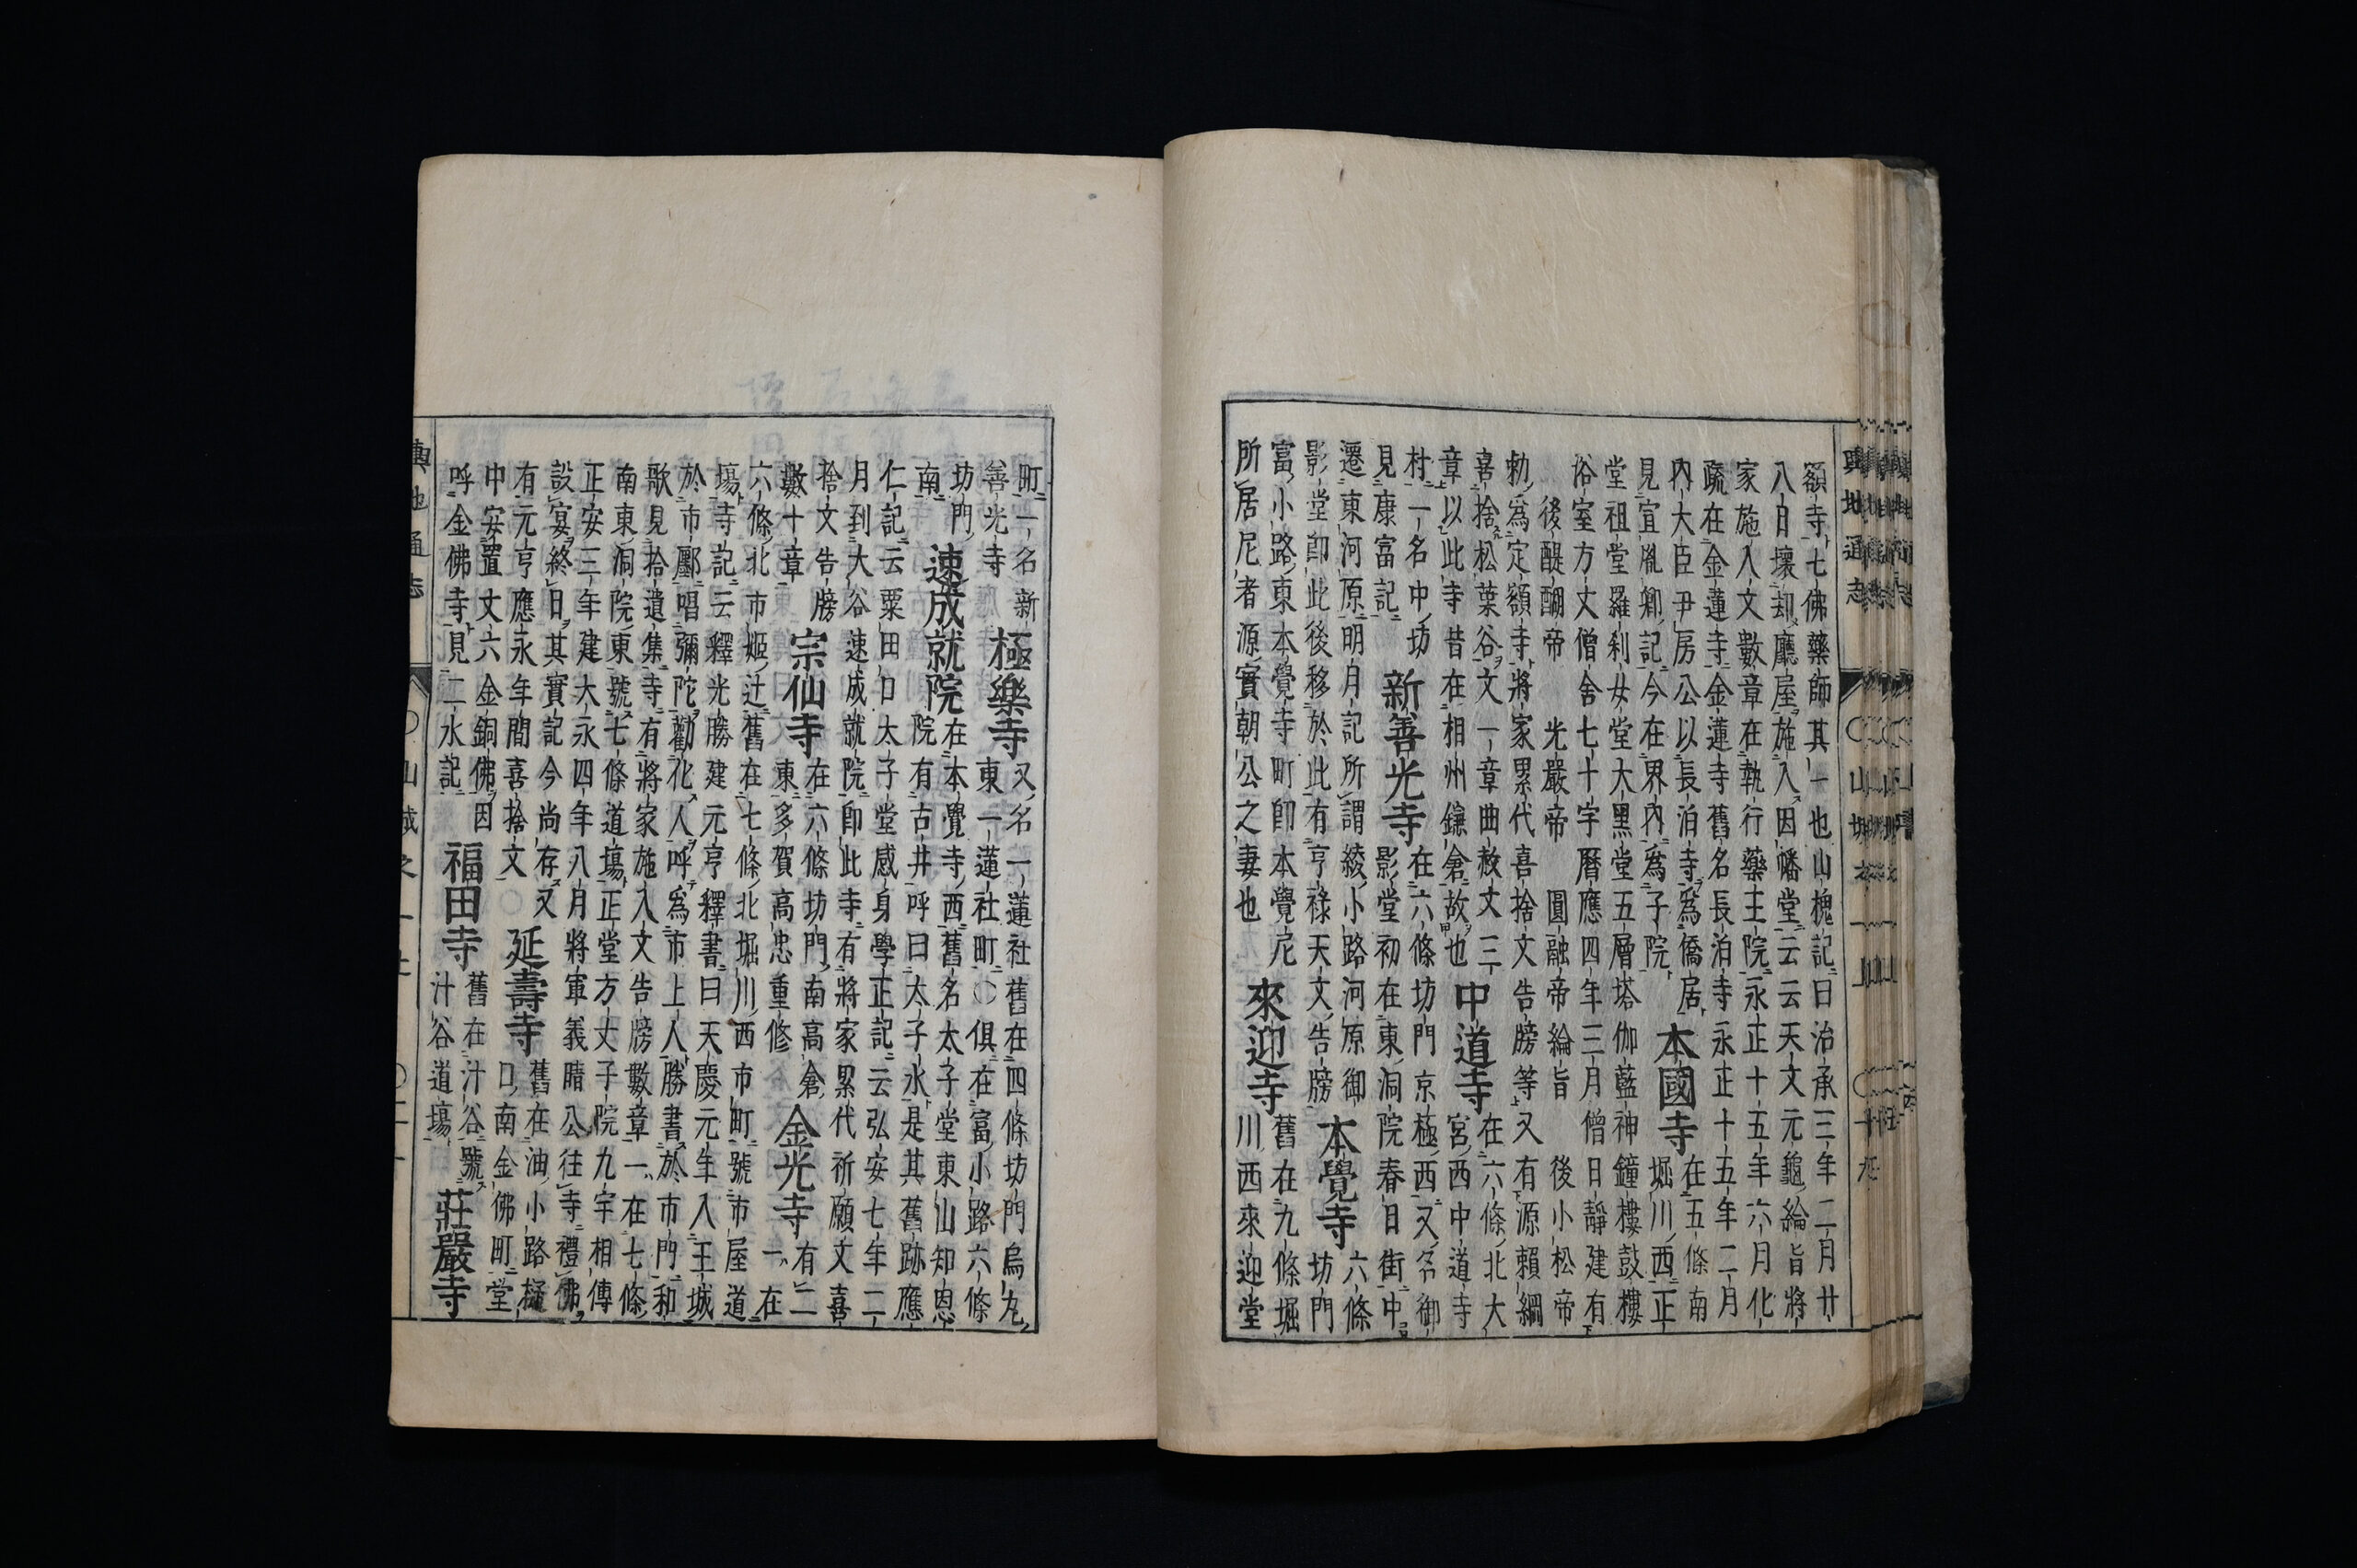 額寺七佛藥師其一也山槐記曰治承三年二月廿
八日壞却廳屋施入因幡堂云云天文元龜綸旨將
家施入文數章在執行藥王院永正十五年六月化
疏在金蓮寺金蓮寺舊名長泊寺永正十五年二月
內大臣尹房公以長泊寺爲僑居
見宣胤卿記今在界內爲子院
本國寺
在五條南
堀川西正
堂祖堂羅刹女堂大黑堂五層塔伽藍神鐘樓鼓樓
浴室方丈僧舍七十宇曆應四年三月僧日靜建有
後醍醐帝 光嚴帝 圓融帝綸旨 後小松帝
勅爲定額寺將家累代喜捨文告牓等又有源賴綱
喜捨松葉谷文一章曲赦文三
章以此寺昔在相州鎌倉故也
中道寺
在六條北大
宮西中道寺
村一名中坊
見康富記
新善光寺
在六條坊門京極西又名御
影堂初在東洞院春日街中
遷東河原明月記所謂綾小路河原御
影堂卽此後移於此有亨祿天文告牓
本覺寺
六條
坊門
富小路東本覺寺町卽本覺尼
所居尼者源實朝公之妻也
來迎寺
舊在九條堀
川西來迎堂
輿地通志 ○山城 ○十九
町一名新
善光寺
極樂寺
又名一蓮社舊在四條坊門烏丸
東一蓮社町○俱在富小路六條
坊門
南
速成就院
在本覺寺西舊名太子堂東山知恩
院有古井呼曰太子水是其舊跡應
仁記云粟田口太子堂感身學正記云弘安七年二
月到大谷速成就院卽此寺有將家累代祈願文喜
捨文告牓
數十章
宗仙寺
在六條坊門南高倉
東多賀高忠重修
金光寺
有二
一在
六條北市姬辻舊在七條北堀川西市町號市屋道
塲寺記云釋光勝建元亨釋書曰天慶元年入王城
於市鄽唱彌陀勸化人呼爲市上人勝書於市門和
歌見拾遺集寺有將家施入文告牓數章一在七條
南東洞院東號七條道塲正堂方丈子院九宇相傳
正安三年建大永四年八月將軍義晴公往寺禮佛
設宴終日其實記今尚存又
有元亨應永年間喜捨文
延壽寺
舊在油小路樋
口南金佛町堂
中安置丈六金銅佛因
呼金佛寺見二水記
福田寺
舊在汁谷號
汁谷道塲
莊嚴寺